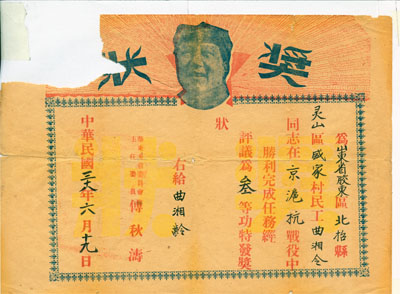 奖状
為山東省胶東區北招縣
灵山區威家村民工曲湘令
同志在京滬杭戰役中
勝利完成任務經
評議為叁等功特發獎
狀
右給曲湘齡
傅秋濤
中華民國三八年六月十九日